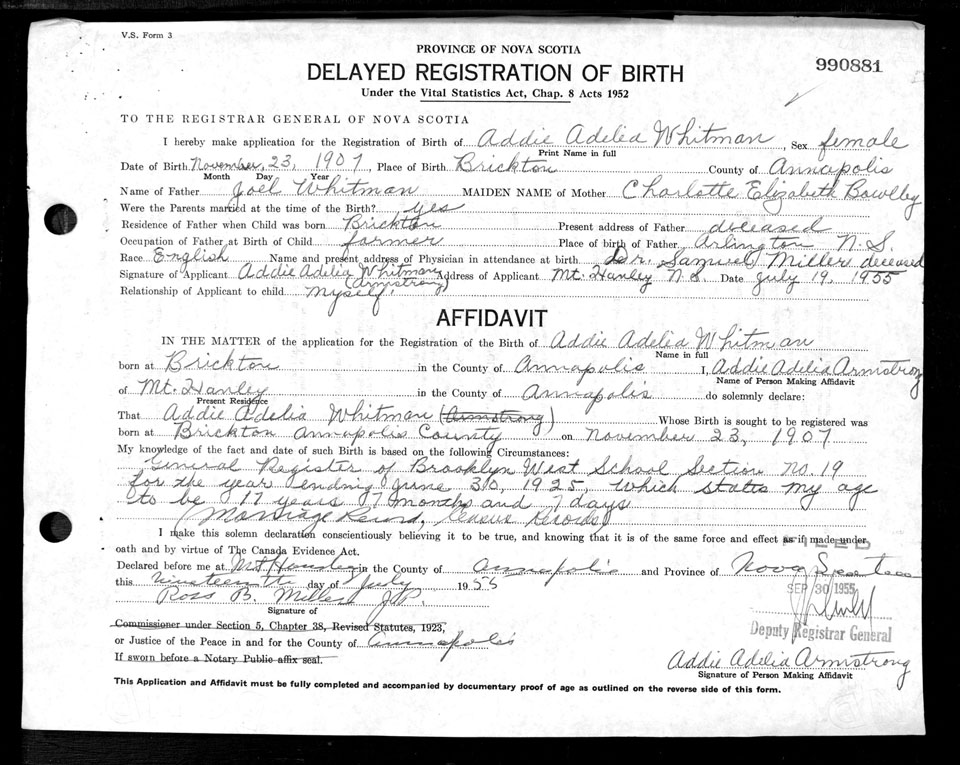 V.S. Form 3
PROVINCE OF NOVA SCOTIA
DELAYED REGISTRATION OF BIRTH
990881
Under the Vital Statistics Act, Chap. 8 Acts 1952
TO THE REGISTRAR GENERAL OF NOVA SCOTIA
I hereby make application for the Registration of Birth of Addie Adelia Whitman, Sex female
Print Name in full
Date of Birth November, 23, 1907, Place of Birth Brickton County of Annapolis
Month Day Year
Name of Father Joel Whitman MAIDEN NAME of Mother Charlotte Elizabeth Bowlby
Were the Parents married at the time of the Birth? yes
Residence of Father when Child was born Brickton Present address of Father deceased
Occupation of Father at Birth of Child farmer Place of birth of Father Arlington N.S.
Race English Name and present address of Physician in attendance at birth Dr. Samuel Miller deceased
Signature of Applicant Addie Adelia Whitman (Armstrong) Address of Applicant Mt. Hanley N.S. Date July 19, 1955
Relationship of Applicant to child myself.
AFFIDAVIT
IN THE MATTER of the application for the Registration of the Birth of Addie Adelia Whitman
Name in full
born at Brickton in the County of Annapolis I, Addie Adelia Armstrong
Name of Person Making Affidavit
of Mt. Hanley in the County of Annapolis do solemnly declare:
Present Residence
That Addie Adelia Whitman (Armstrong) Whose Birth is sought to be registered was
born at Brickton Annapolis County on November 23, 1907
My knowledge of the fact and date of such Birth is based on the following Circumstances:
General Register of Brooklyn West School Section No. 19
for the year ending June 30, 1925 which states my age
to be 17 years 7 months and 7 days
(Marriage Record, Census Records)
I make this solemn declaration conscientiously believing it to be true, and knowing that it is of the same force and effect as if made under
oath and by virtue of The Canada Evidence Act.
FILED
Declared before me at Mt Hanley in the County of Annapolis and Province of Nova Scotia
this nineteenth day of July 1955
SEP 30 1955
Ross B. Miller J.P.
Signature of
Commissioner under Section 5, Chapter 38, Revised Statutes, 1923,
Deputy Registrar General
or Justice of the Peace in and for the County of Annapolis
If sworn before a Notary Public affix seal.
Addie Adelia Armstrong
Signature of Person Making Affidavit
This Application and Affidavit must be fully completed and accompanied by documentary proof of age as outlined on the reverse side of this form.